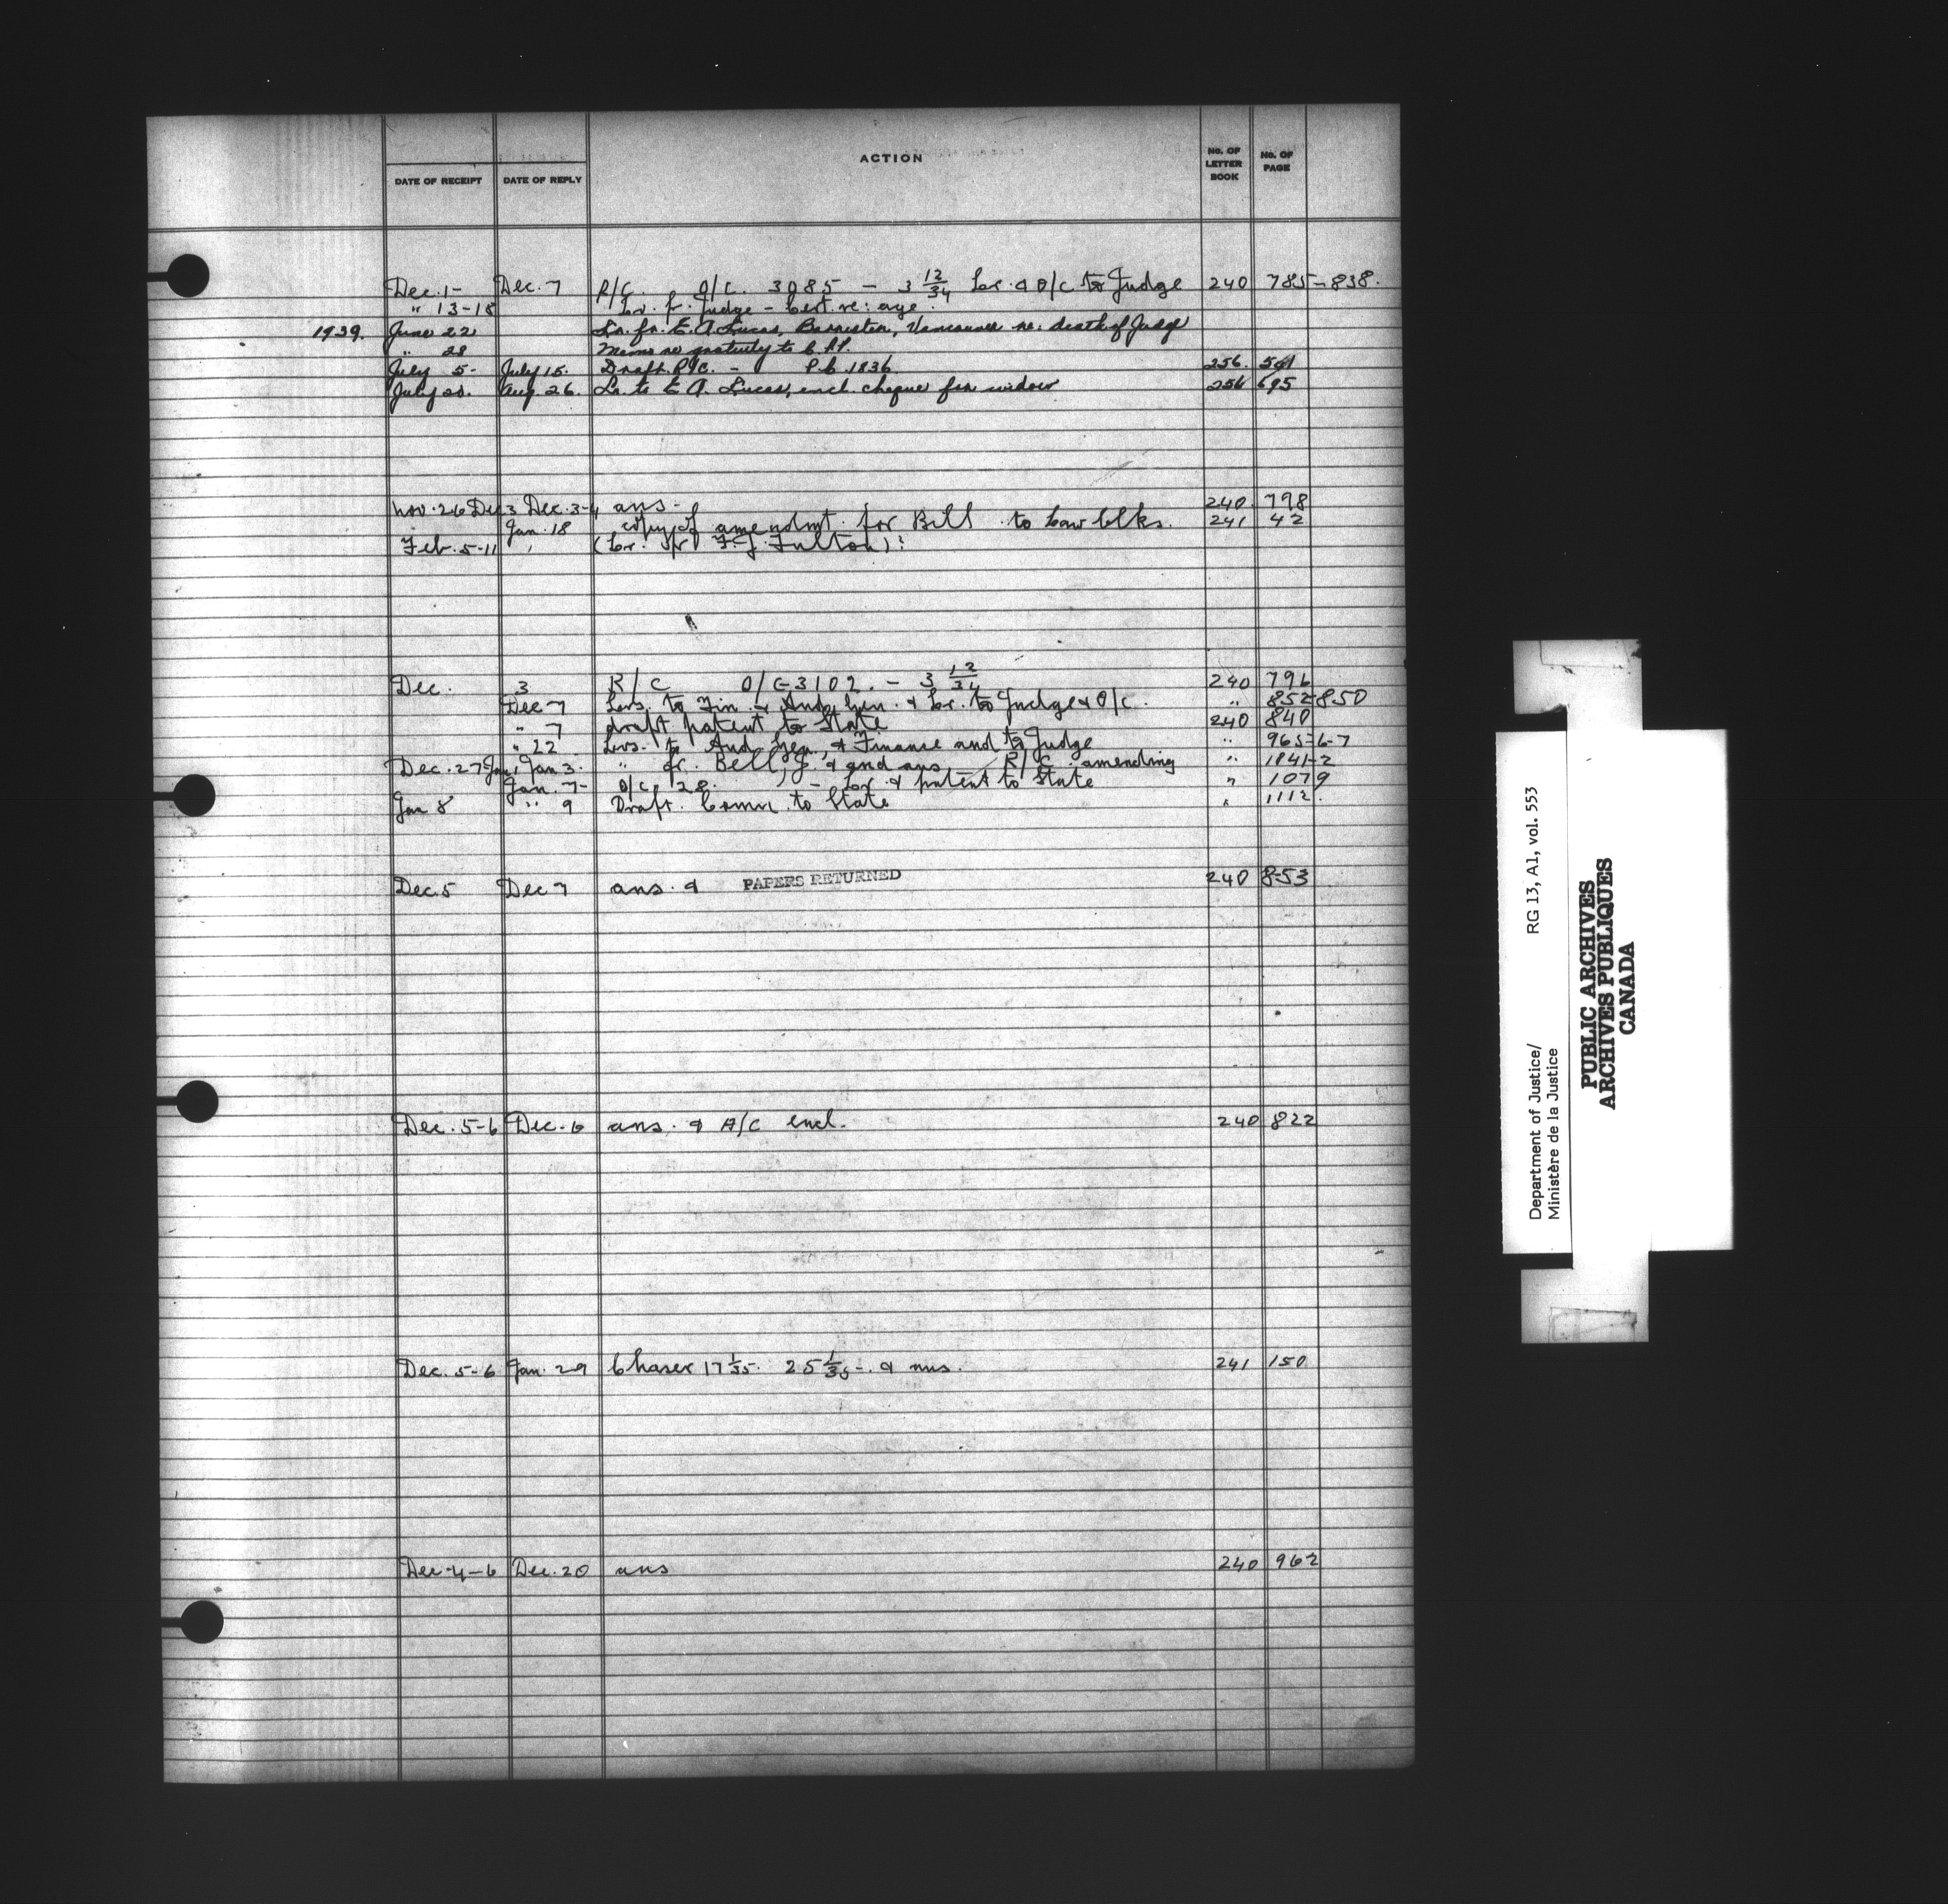 DATE OF RECEIPT DATE OF REPLY ACTION No. OF LETTER BOOK No. OF PAGE
Dec. 1- Dec. 7 R/C. O/C. 3085 - 3 12/34 Lr. & O/C to Judge 240 785-838.
" 13-18 Lr. fr. Judge - Cert. re: age.
1939. June 22 Lr. fr. E. A. Lucas, Barrister, Vancouver re: death of Judge
" 28 Memo re gratuity to
July 5- July 15. Draft R/C. - P.C. 1836. 256. 501
July 20. Aug. 26. Lr. to E. A. Lucas, encl. cheque for widow 256 695
Nov. 26 Dec 3 Dec. 3-4 ans- 240 798
Jan. 18 copy of amendmt. for Bill to Law Clks. 241 42
Feb. 5-11 (Lr. fr. F. J. Fulton)
Dec. 3 R/C O/C 3102. - 3 12/34 240 796
Dec 7 Lrs. to Fin. & Aud. Gen. & Lr. to Judge & O/C. " 852-850
" 7 draft patent to State 240 840
" 22 Lrs. to Aud. Gen., & Finance and to Judge " 965-6-7
Dec. 27 Jan. Jan 3. " fr. Bell, J. & and ans R/C. amending " 1041-2
Jan. 7- O/C 28. - Lr. & patent to State " 1079
Jan 8 " 9 Draft. Comn. to State " 1112.
Dec. 5 Dec 7 ans. & PAPERS RETURNED 240 853
Dec. 5-6 Dec. 6 ans. & A/C encl. 240 822
Dec. 5-6 Jan. 29 Chaser 17 1/35. 25 1/35-. & ans. 241 150
Dec 4-6 Dec. 20 ans 240 962
RG 13, A1, vol. 553
Department of Justice/
Ministère de la Justice
PUBLIC ARCHIVES
ARCHIVES PUBLIQUES
CANADA